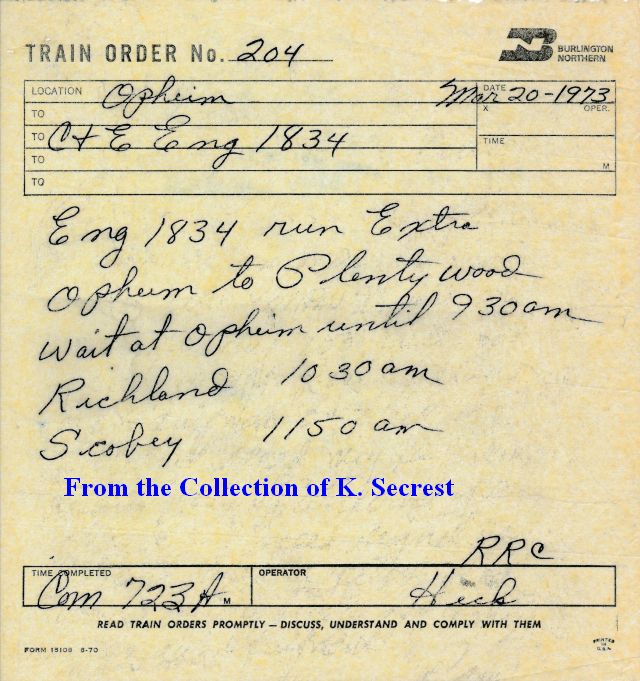 TRAIN ORDER No. 204
BURLINGTON
NORTHERN
LOCATION Opheim
DATE Mar 20-1973
TO
X OPER.
TO C+E Eng 1834
TIME
TO
M
TO
Eng 1834 run Extra
Opheim to Plentywood
Wait at Opheim until 930am
Richland 1030am
Scobey 1150am
From the Collection of K. Secrest
RRC
TIME COMPLETED
Com 723A M
OPERATOR
READ TRAIN ORDERS PROMPTLY — DISCUSS, UNDERSTAND AND COMPLY WITH THEM
FORM 15108 6-70
PRINTED
IN
U.S.A.